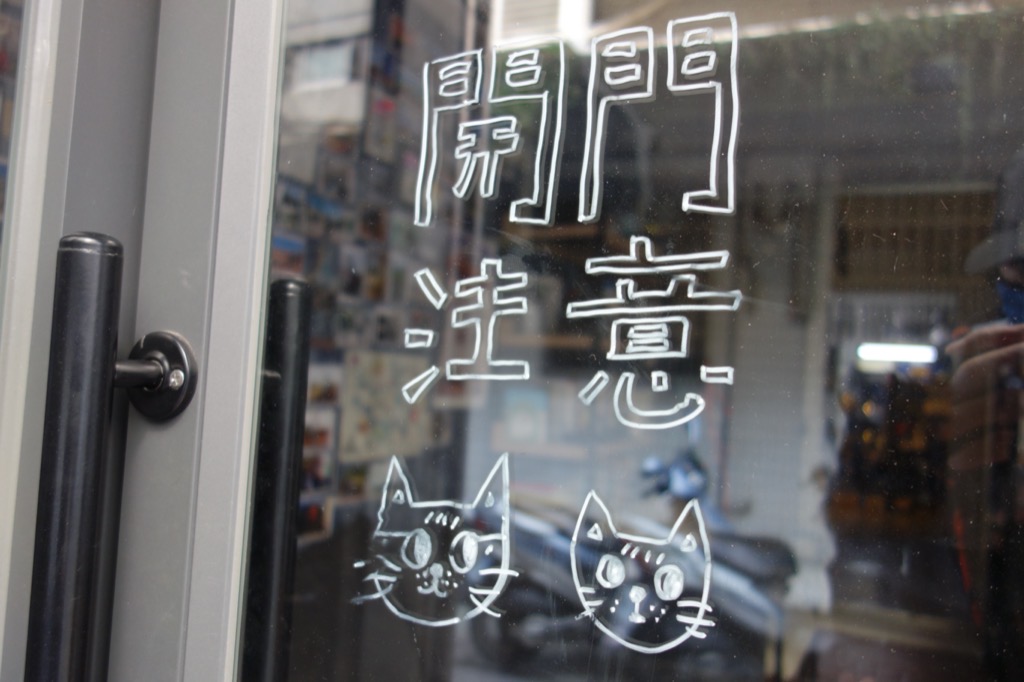 開門
注意